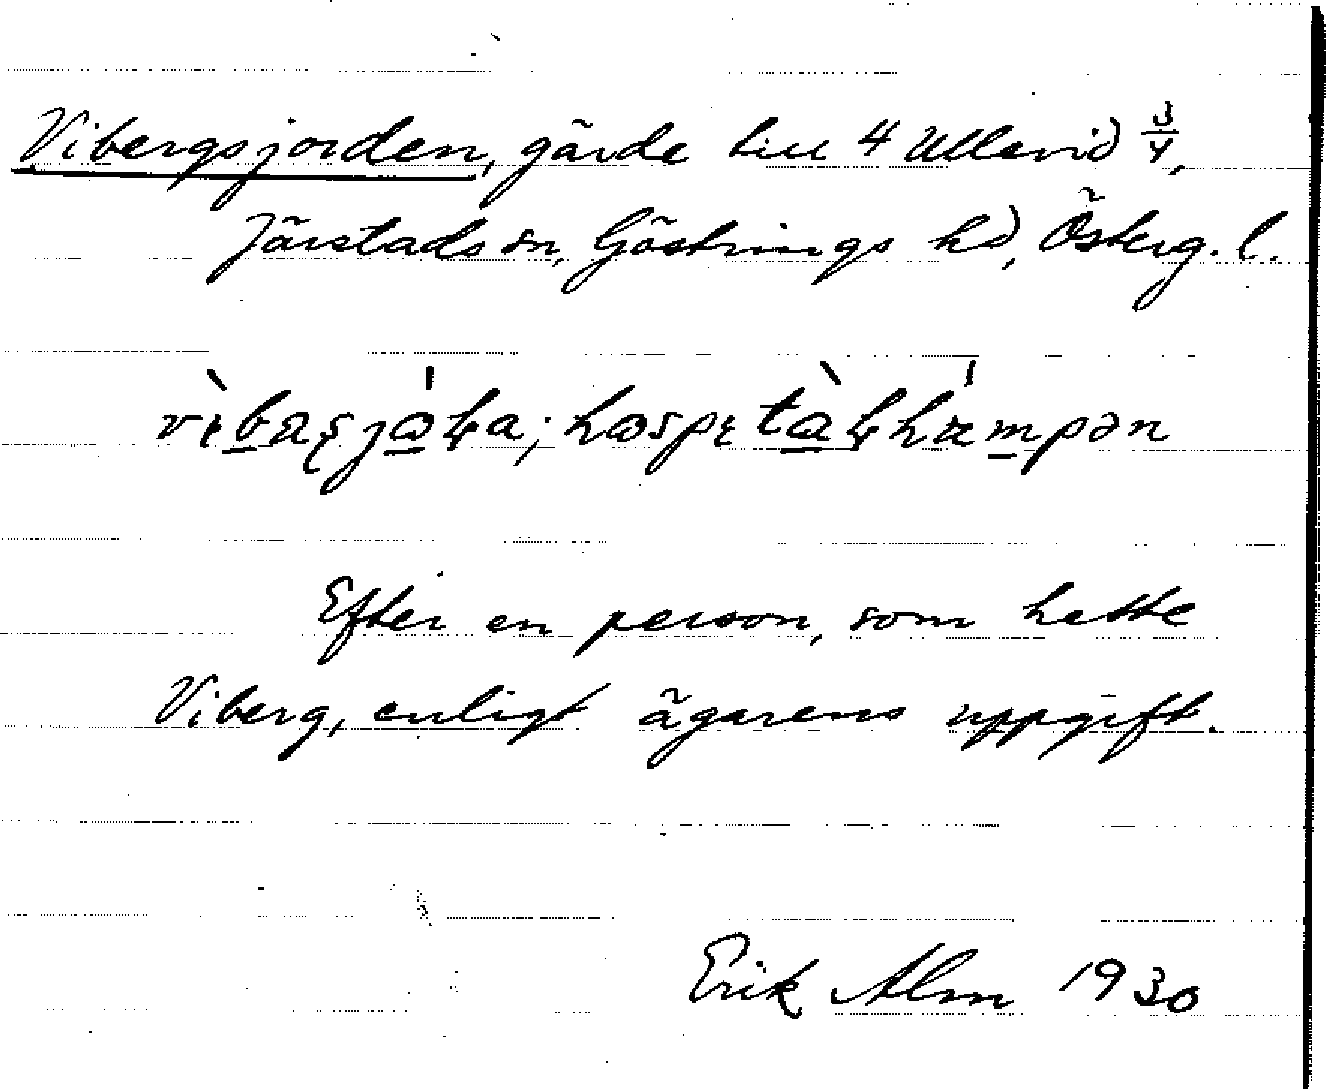 Vibergsjorden, gärde till 4 Ullevid 3/4,
Järstads sn, Göstrings hd, Österg. l.
Efter en person, som hette
Viberg, enligt ägarens uppgift.
Erik Alm 1930